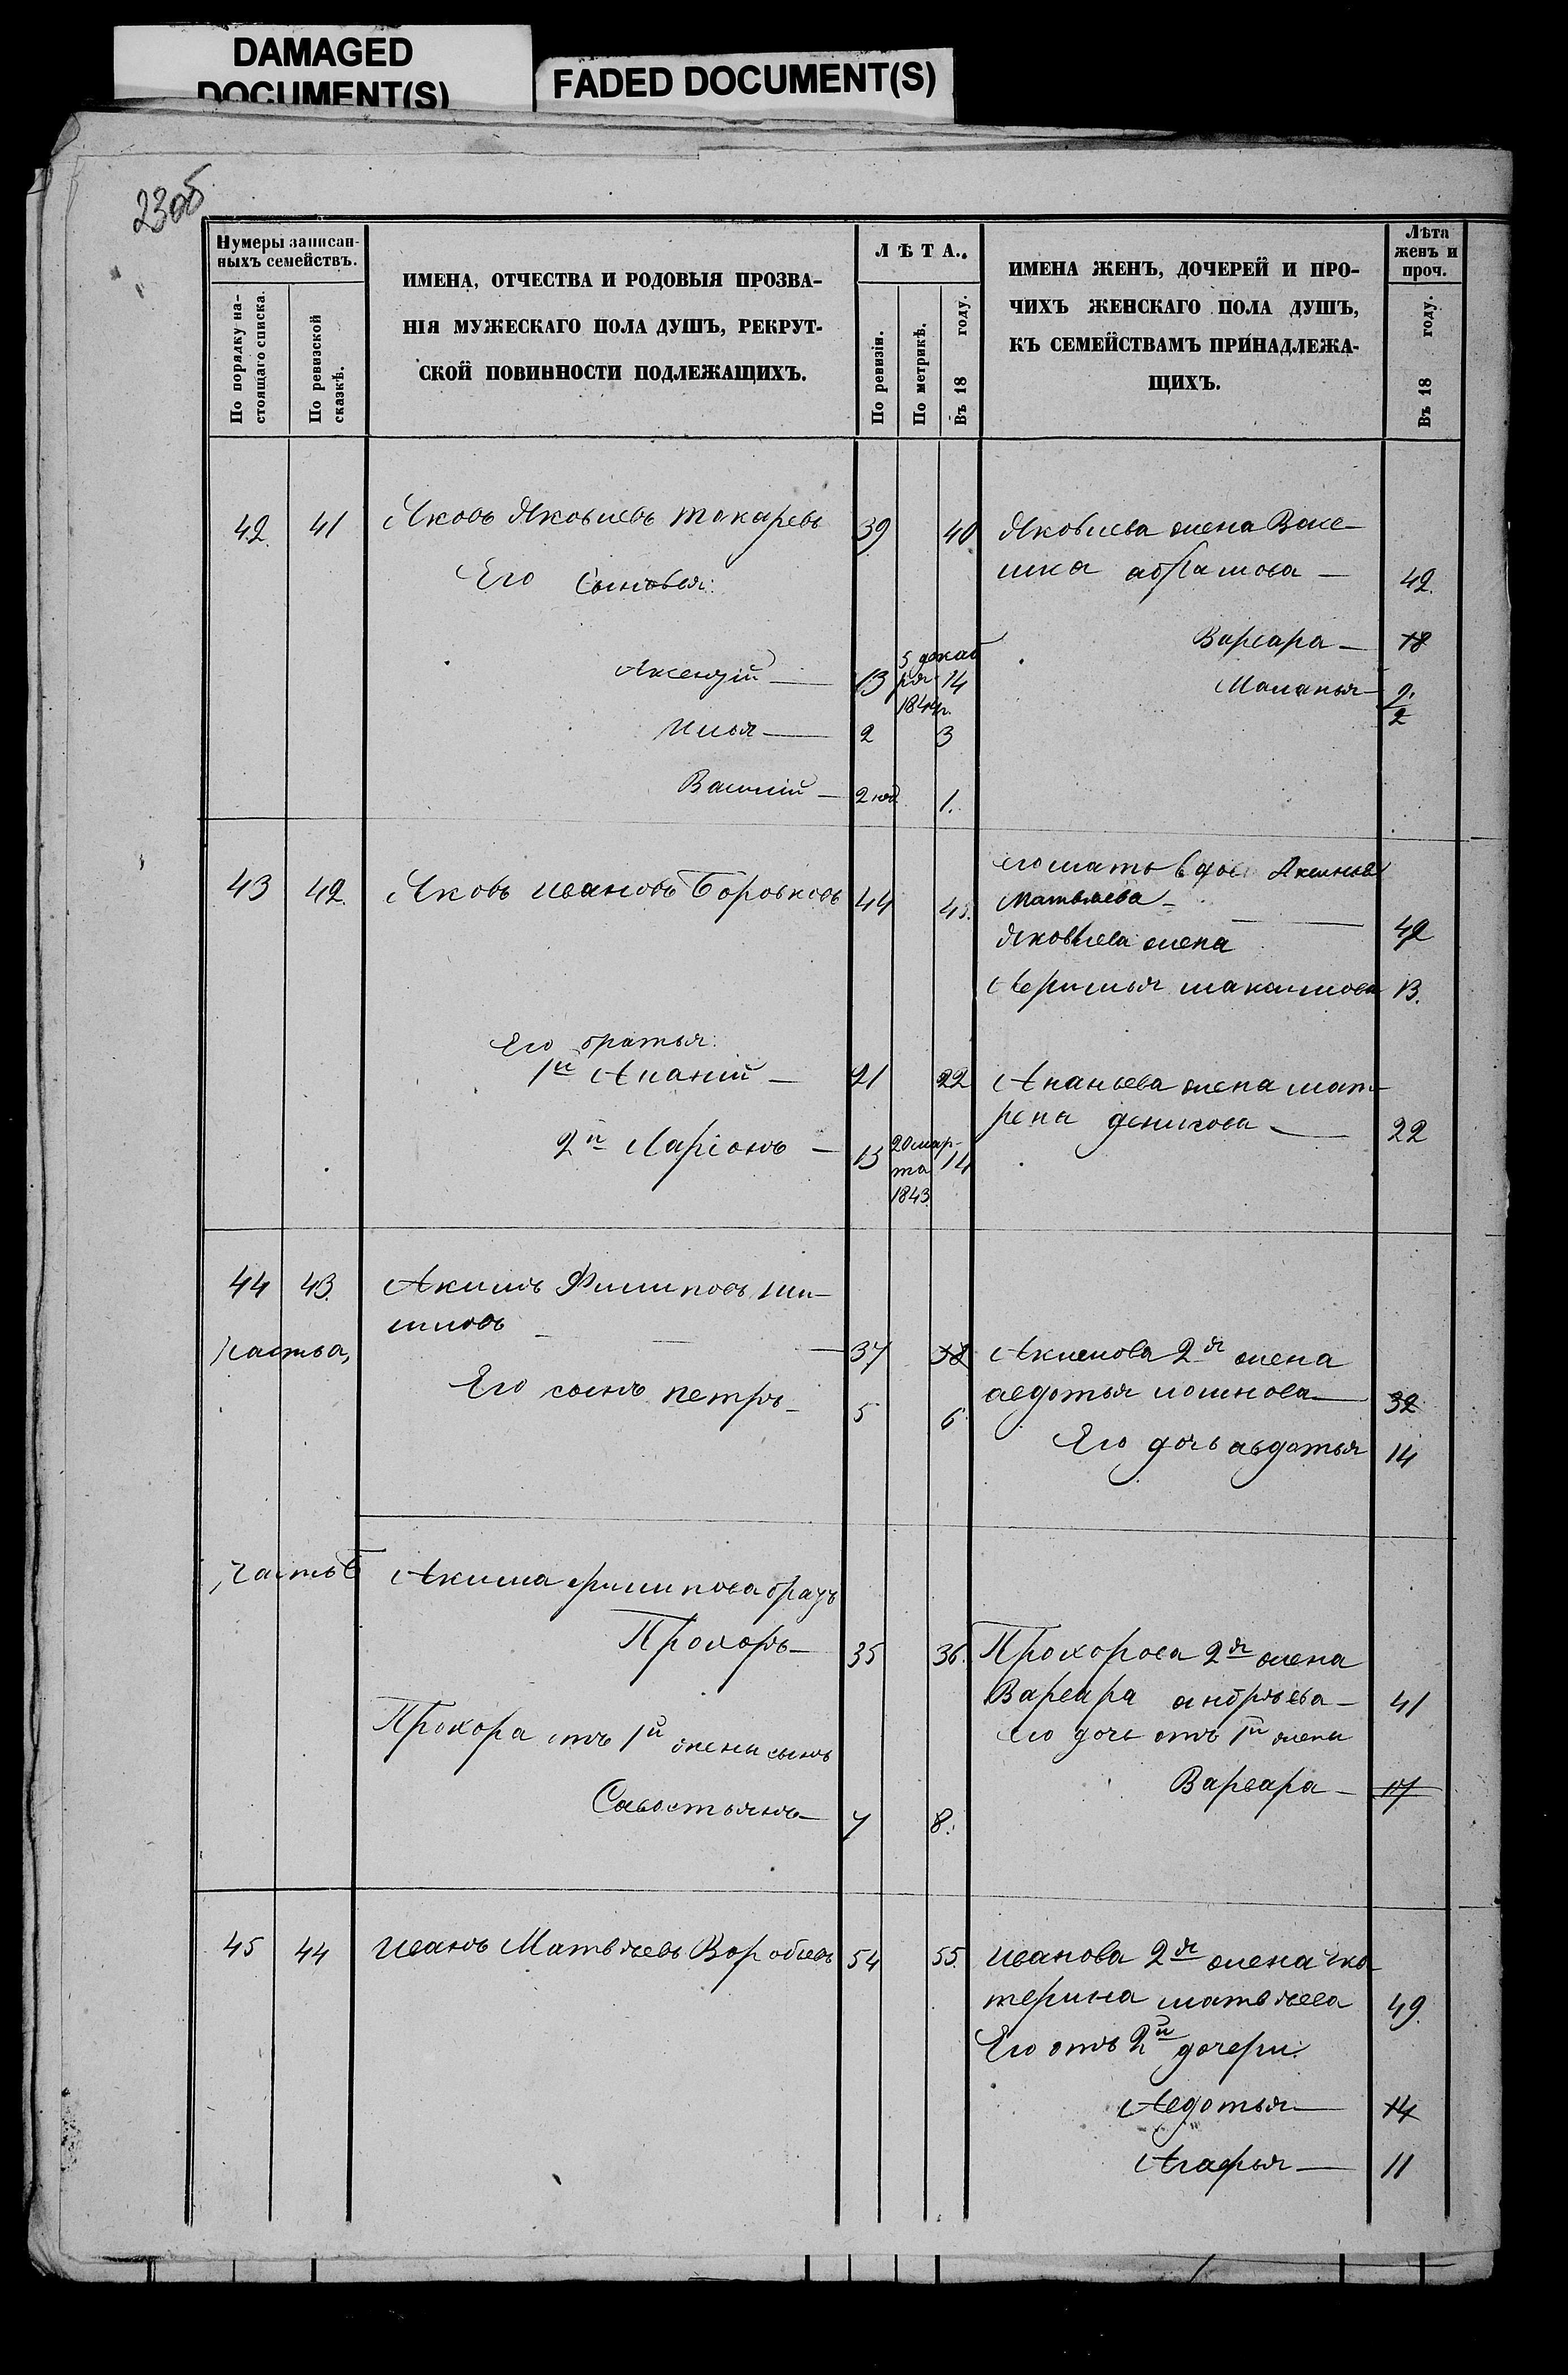 DAMAGED
DOCUMENT(S)
FADED DOCUMENT(S)
23об
Нумеры записан-
ныхъ семействъ.
По порядку на-
стоящаго списка.
По ревизской
сказкѣ.
ИМЕНА, ОТЧЕСТВА И РОДОВЫЯ ПРОЗВА-
НІЯ МУЖЕСКАГО ПОЛА ДУШЪ, РЕКРУТ-
СКОЙ ПОВИННОСТИ ПОДЛЕЖАЩИХЪ.
ЛѢТА.
По ревизіи.
По метрикѣ.
Въ 18 году.
ИМЕНА ЖЕНЪ, ДОЧЕРЕЙ И ПРО-
ЧИХЪ ЖЕНСКАГО ПОЛА ДУШЪ,
КЪ СЕМЕЙСТВАМЪ ПРИНАДЛЕЖА-
ЩИХЪ.
Лѣта
женъ и
проч.
Въ 18 году.
42 41 Яковъ Яковлевъ Токаревъ 39 40 Яковлева жена
Абрамова — 42
Его Сыновья:
Варвара — 18
Аксентій — 13 5 декаб
ря 14
1844г.
Маланья — 2
2
Илья — 2 3
Василій — 2 нед 1.
его мать вдова Аксинья
Матвѣева —
43 42 Яковъ Ивановъ Боровковъ 44 45.
Яковлева жена 42
максимова 13.
Его братья:
1й Ананій — 21 22 Ананьева жена Мат-
рена денисова — 22
2й Ларіонъ — 13 20 мар-
та 14
1843
44 43 Акимъ Филиповъ Ши-
шловъ — 37 38
часть а,
Акимова 2я жена
авдотья — 32
Его сынъ Петръ — 5 6
Его дочь авдотья 14
часть б Акима филипова братъ
Прохоръ — 35 36. Прохорова 2я жена
Варвара андрѣева — 41
Прохора отъ 1й жены сынъ
его дочь отъ 1й жены
Варвара — 17
Савостьянъ — 7 8.
45 44 Иванъ Матвѣевъ Воробьевъ 54 55. Иванова 2я жена Ека
терина матвѣева 49.
Его отъ 2й дочери:
Авдотья — 14
Агафья — 11